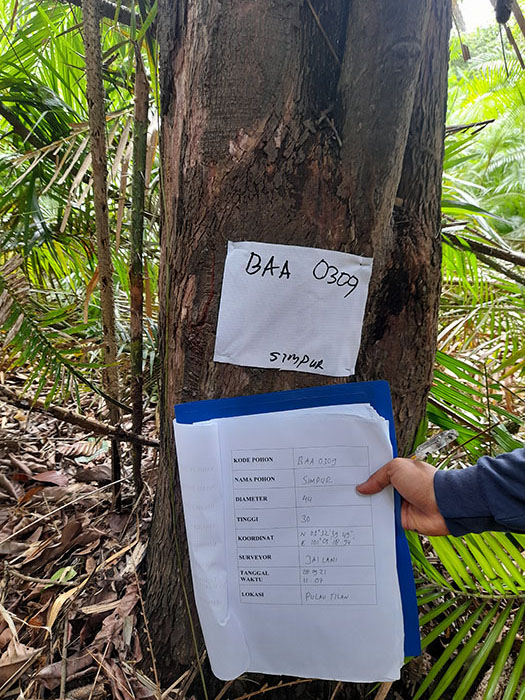 BAA 0309
SIMPUR
KODE POHON BAA 0309
NAMA POHON SIMPUR
DIAMETER 44
TINGGI 30
KOORDINAT N
E
SURVEYOR JAILANI
TANGGAL
WAKTU 11 07
LOKASI PULAU TILAN